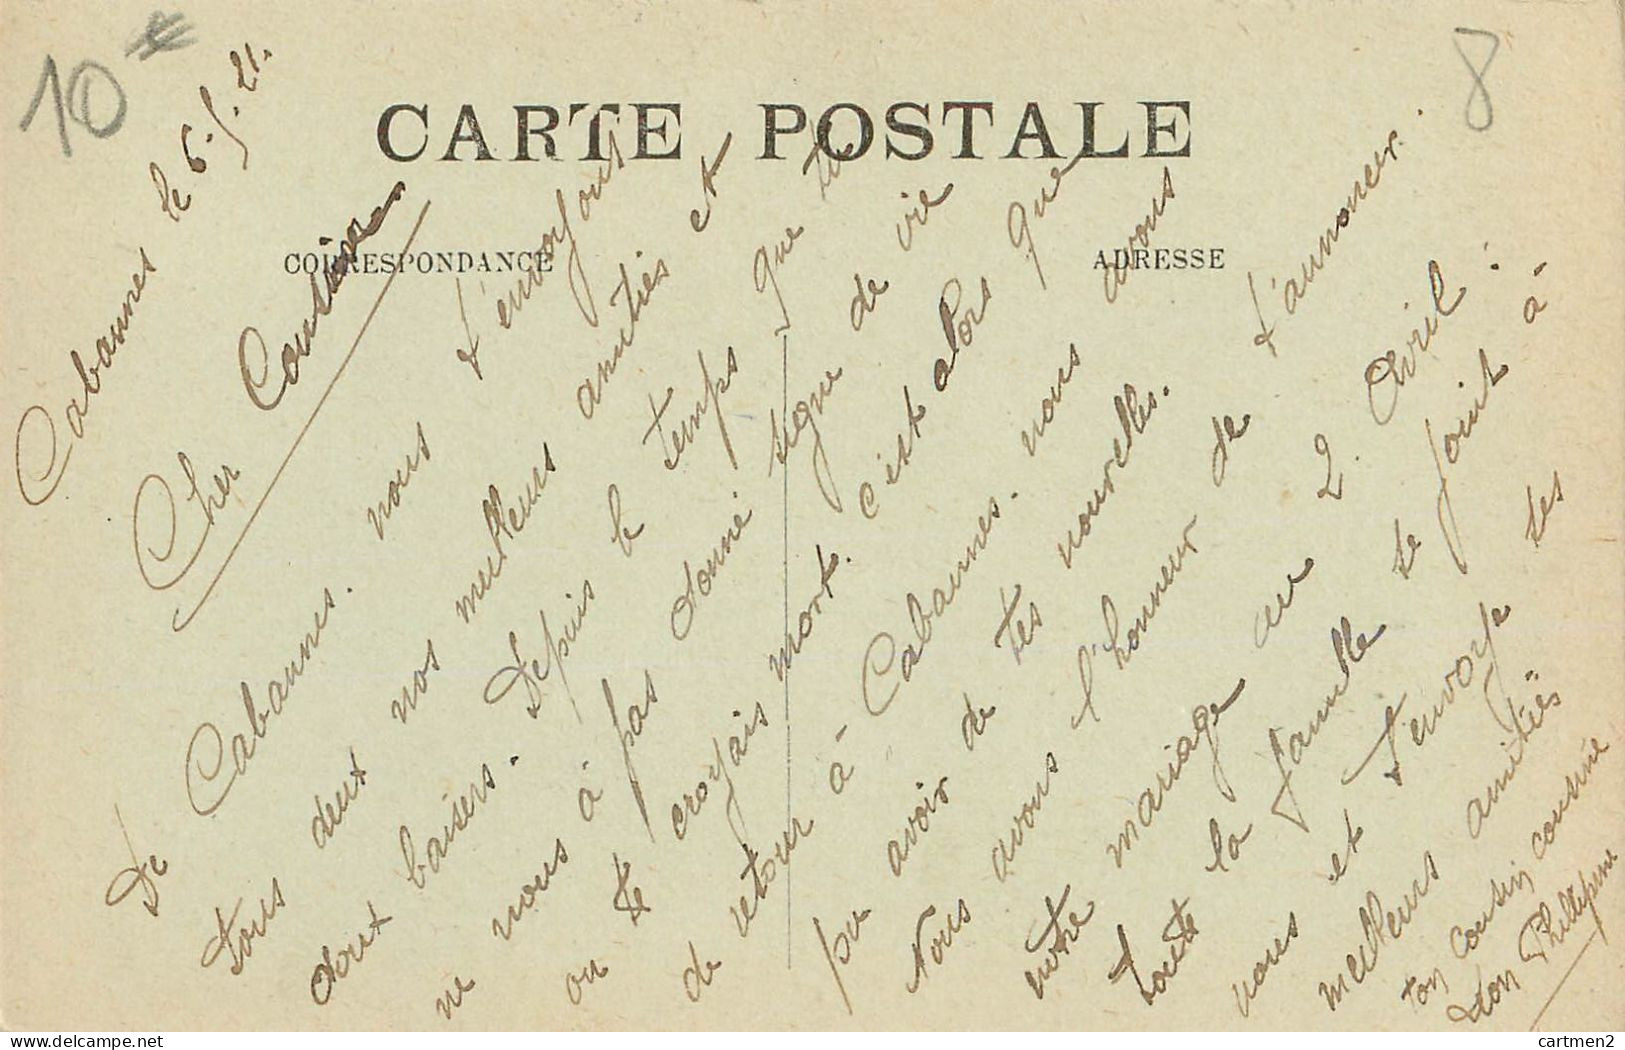 10
8
CARTE POSTALE
CORRESPONDANCE
ADRESSE
Cabannes le 6.5.21.
Cher Cousin
De Cabannes. nous t'envoyons
tous deux nos meilleurs amitiés et
doux baisers. Depuis le temps que tu
ne nous à pas donné signe de vie
on te croyais mort. c'est alors que
de retour à Cabannes. nous avons
pu avoir de tes nouvelles.
Nous avons l'honneur de t'annoncer.
notre mariage au 2. Avril:
toute la famille se joint à
nous et t'envoye ses
meilleurs amitiés
ton cousin cousine
Léon Philippine
cartmen2